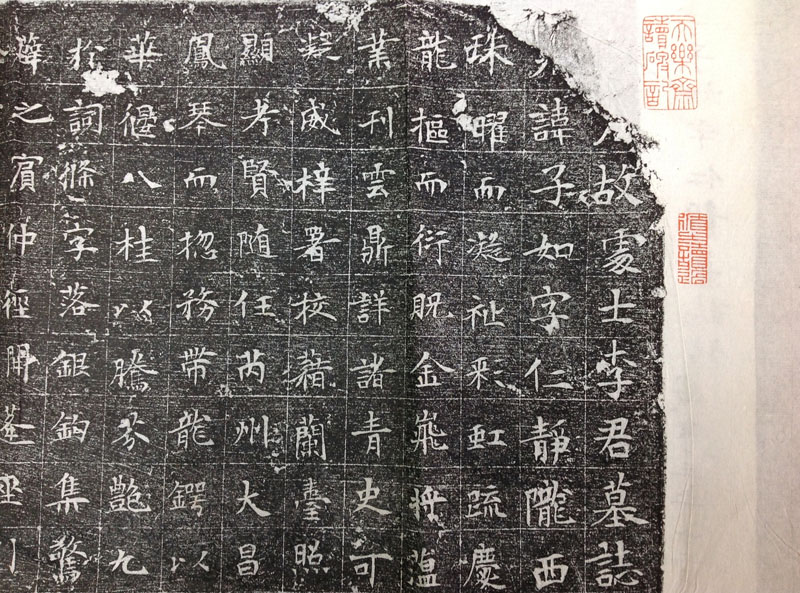 故處士李君墓誌
諱子如字仁靜隴西
珠曜而凝祉彩虹疏慶
龍樞而衍貺金飛將藴
業刊雲鼎詳諸青史可
凝威梓署校藉蘭臺照
顯考賢随任芮州大昌
鳳琴而揔務帶龍鍔以
華偃八桂以騰芬艷九
於詞條字落銀鉤集驚
之賓仲徑開